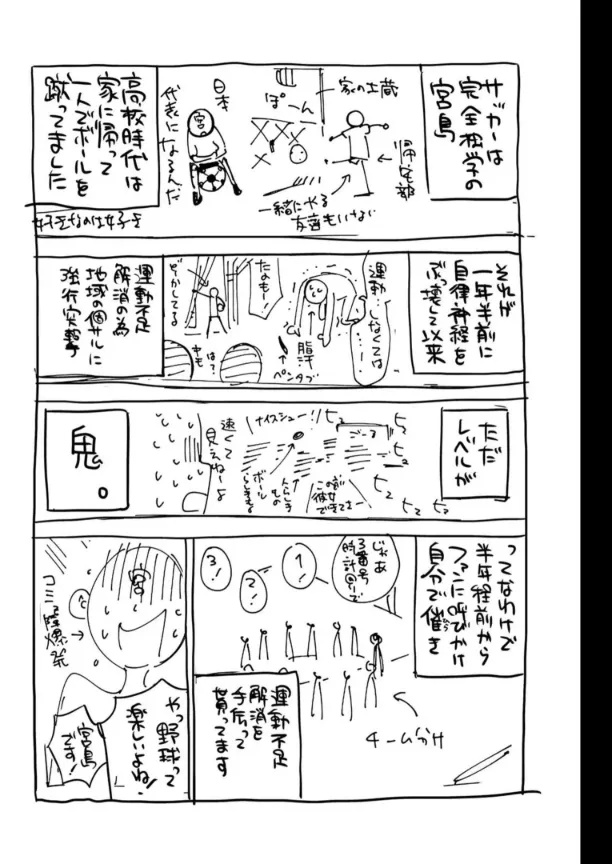 サッカーは
完全独学の
宮島
家の土蔵
ぽーん
帰宅部
一緒にやる
友達もいない
日本
代表になるんだ
宮
高校時代は
家に帰って
一人でボールを
蹴ってました
それが
一年半前に
自律神経を
ぶっ壊して以来
運動
しなくては
……
脂汗
ペンタブ
たのもー!
どきどきしてる
は?
中も
運動不足
解消の為
地域の個サルに
強行突撃
ただ
レベルが
ヒュ
ヒュ
ヒュ
ヒュ
ごーる
ナイスシュー!
この前
彼女できてさー
人らしき
もの
ボール
らしきもの
速くて
見えねーよ
鬼。
ってなわけで
半年程前から
ファンに呼びかけ
自分で催き
じゃあ
3番号
時計回りで
1!
2!
3!
チーム分け
運動不足
解消を
手伝って
貰ってます
宮
コミ障爆発
やっ野球って
楽しいよね!
宮島
です!